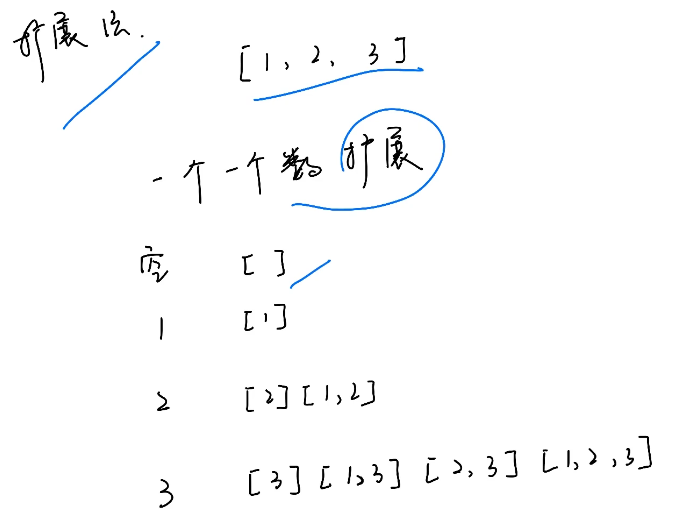 扩展法.
[1, 2, 3]
一个一个数扩展
空 [ ]
1 [1]
2 [2] [1,2]
3 [3] [1,3] [2,3] [1,2,3]